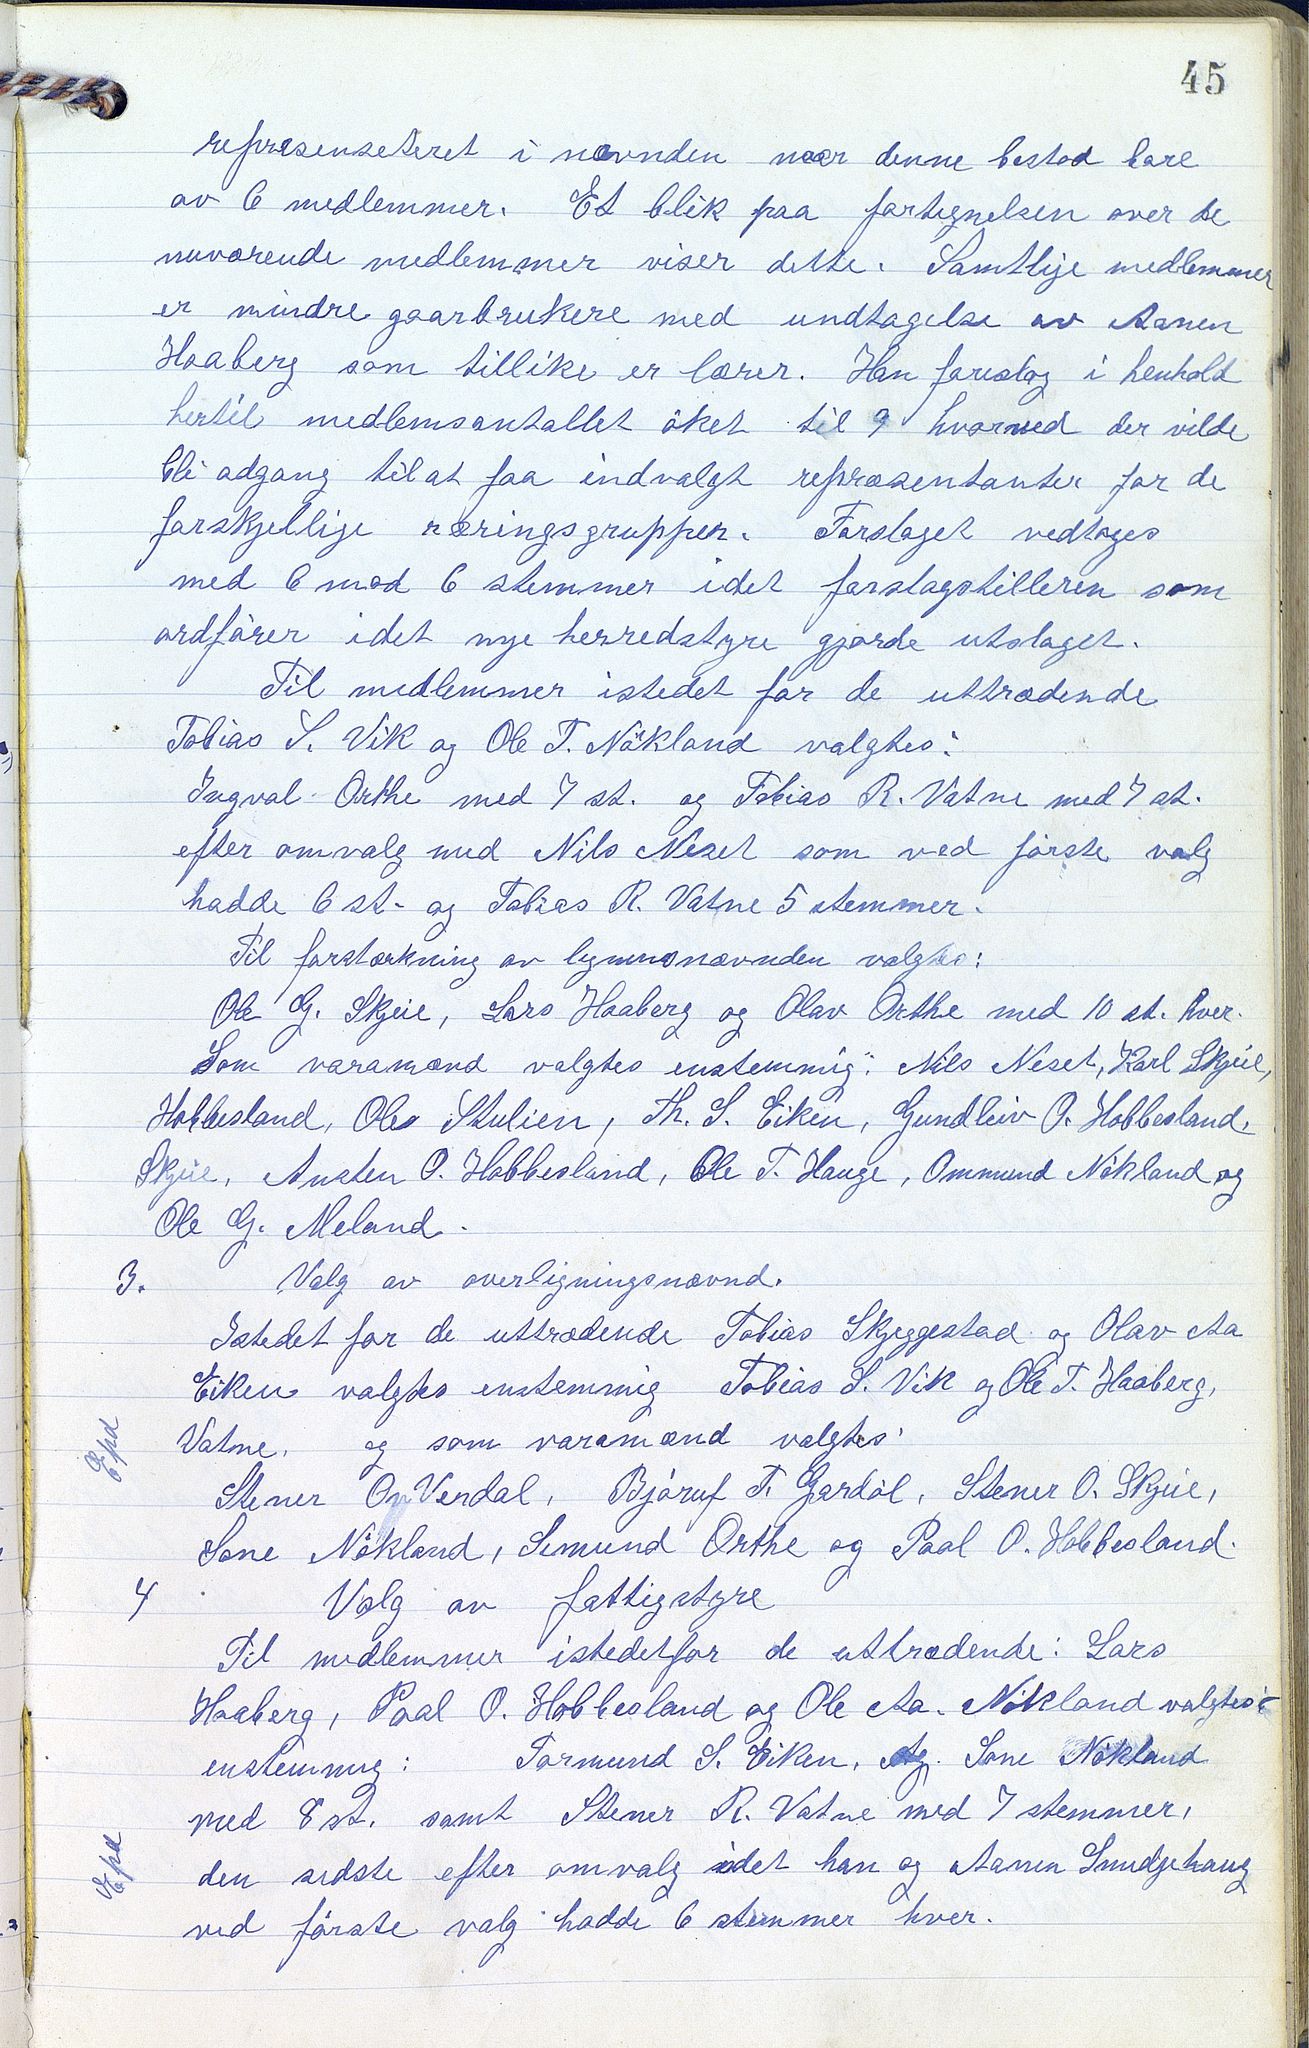 45
repræsenseteret i nævnden naar denne bestod bare
av 6 medlemmer. Et blik paa fortegnelsen over de
nuværende medlemmer viser dette. Samtlige medlemmer
er mindre gaarbrukere med undtagelse av Aanen
Haaberg som tillike er lærer. Han foreslog i henhold
hertil medlemsantallet öket til 9 hvorved der vilde
bli adgang til at faa indvalgt repræsentanter for de
forskjellige næringsgrupper. Forslaget vedtoges
med 6 mod 6 stemmer idet forslagstilleren som
ordförer i det nye herredstyre gjorde utslaget.
Til medlemmer istedet for de uttrædende
Tobias S. Vik og Ole T. Nökland valgtes:
Ingval Orthe med 7 st. og Tobias R. Vatne med 7 st.
efter omvalg med Nils Neset som ved förste valg
hadde 6 st. og Tobias R. Vatne 5 stemmer.
Til forstærkning av ligningsnævnden valgtes:
Ole G. Skjeie, Lars Haaberg og Olav Orthe med 10 st. hver.
Som varamænd valgtes enstemmig: Nils Neset, Karl Skjeie,
Hobbesland, Ole Stulien, Th. S. Eiken, Gundleiv O. Hobbesland,
Skjeie, Austen O. Hobbesland, Ole T. Hauge, Ommund Nökland og
Ole G. Meland.
3. Valg av overligningsnævnd.
Istedet for de uttrædende Tobias Skjeggestad og Olav Aa
Eiken valgtes enstemmig Tobias S. Vik og Ole T. Haaberg,
Epd
Vatne, og som varamænd valgtes:
Stener Verdal, Björuf T. Gardöl, Stener O. Skjeie,
Sone Nökland, Semund Orthe og Paal O. Hobbesland.
4 Valg av fattigstyre
Til medlemmer istedetfor de uttrædende: Lars
Haaberg, Paal O. Hobbesland og Ole Aa. Nökland valgtes
enstemmig: Tormund S. Eiken, Sone Nökland
med 8 st. samt Stener R. Vatne med 7 stemmer,
Epd
den sidste efter omvalg idet han og Aanen Smedjehaug
ved förste valg hadde 6 stemmer hver.